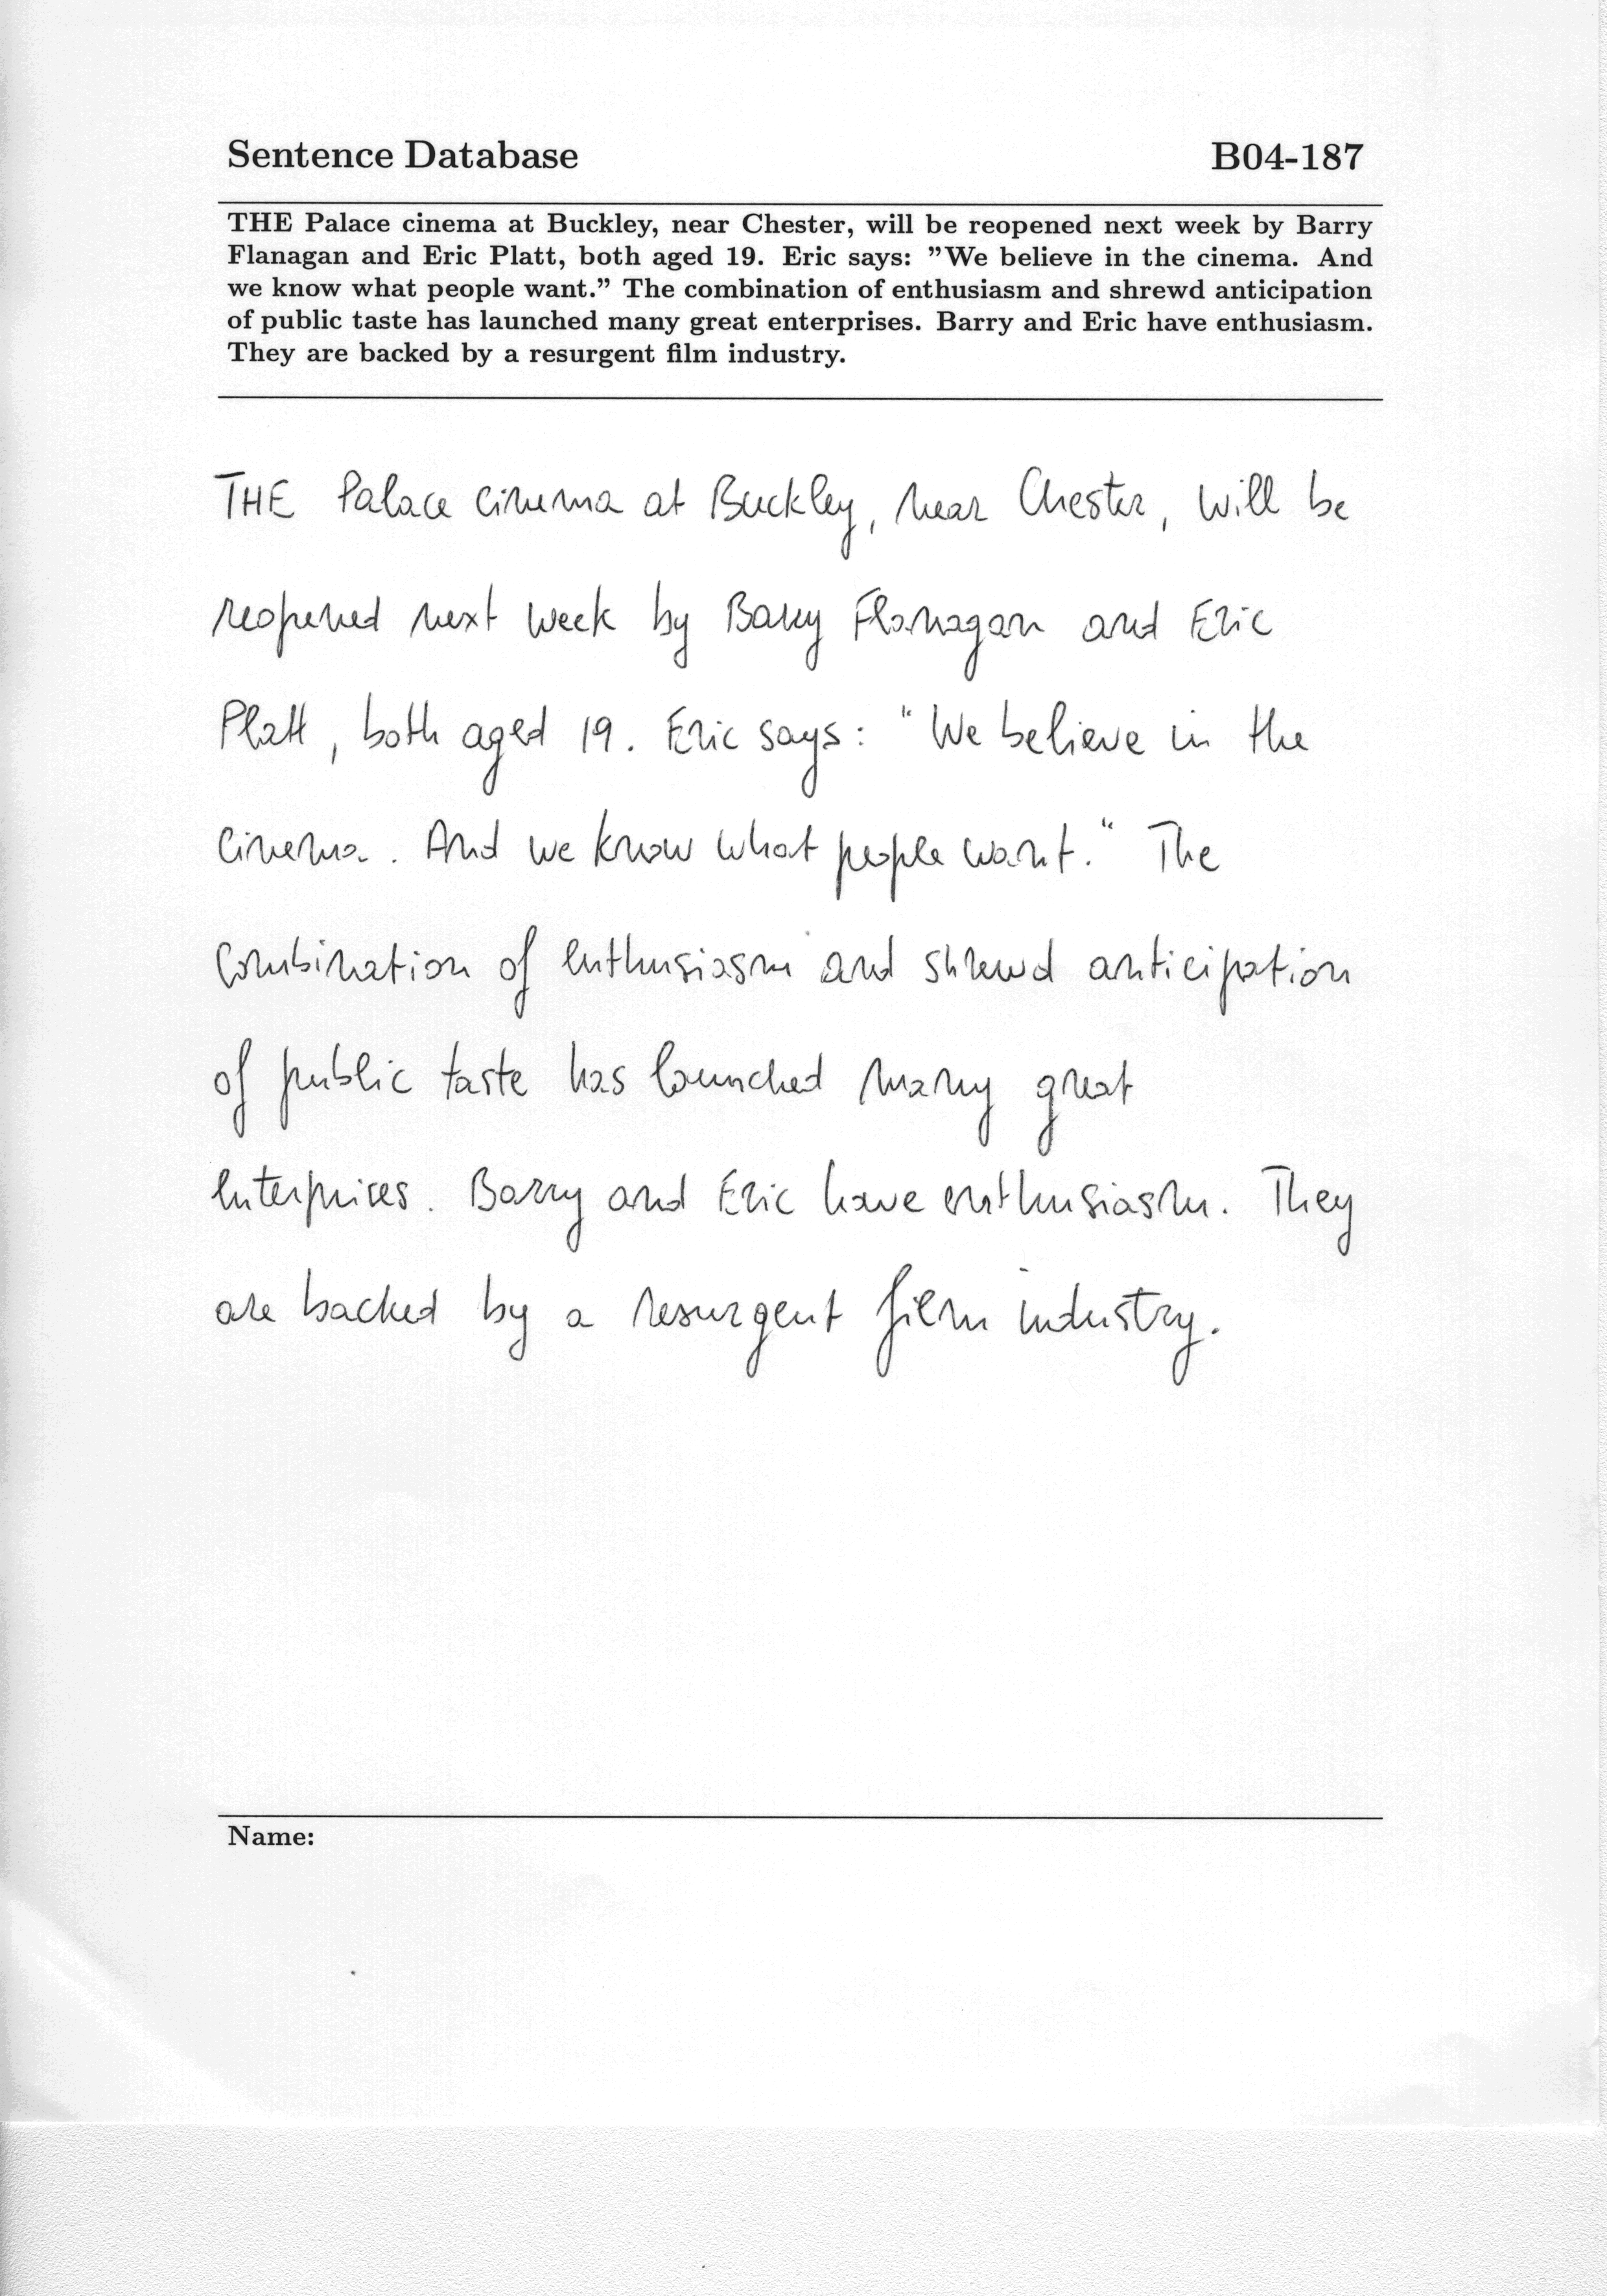 Sentence Database B04-187
THE Palace cinema at Buckley, near Chester, will be reopened next week by Barry
Flanagan and Eric Platt, both aged 19. Eric says: ”We believe in the cinema. And
we know what people want.” The combination of enthusiasm and shrewd anticipation
of public taste has launched many great enterprises. Barry and Eric have enthusiasm.
They are backed by a resurgent film industry.
THE Palace cinema at Buckley, near Chester, will be
reopened next week by Barry Flanagan and Eric
Platt, both aged 19. Eric says: “We believe in the
cinema. And we know what people want.“ The
combination of enthusiasm and shrewd anticipation
of public taste has launched many great
enterprises. Barry and Eric have enthusiasm. They
are backed by a resurgent film industry.
Name: